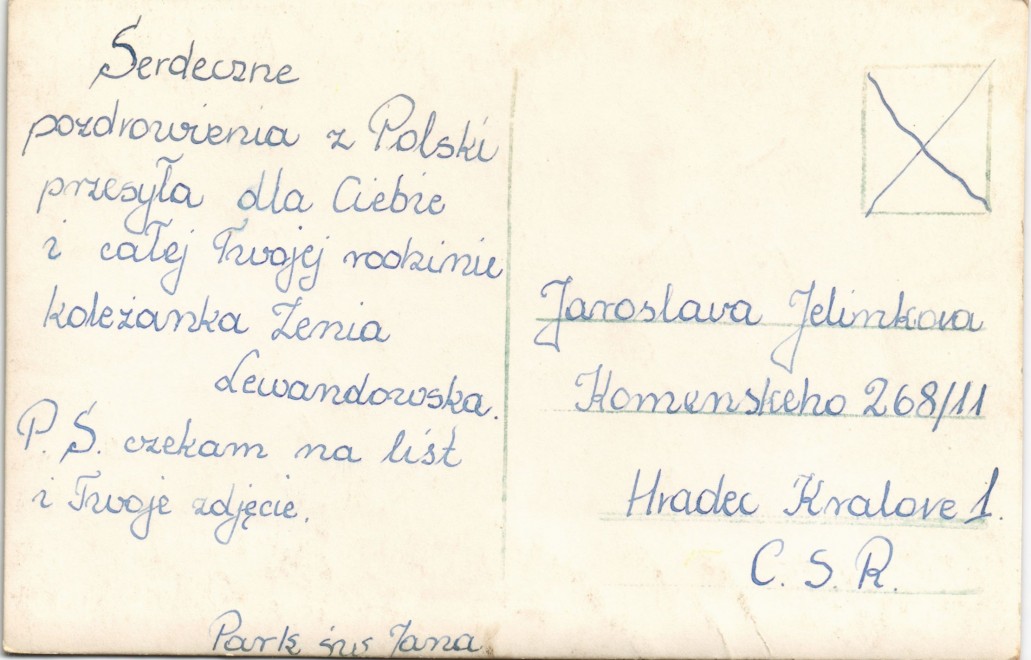 Serdeczne
pozdrowienia z Polski
przesyła dla Ciebie
i całej Twojej rodzinie
koleżanka Żenia
Lewandowska.
P. S. czekam na list
i Twoje zdjęcie.
Park św Jana
Jaroslava Jelinkova
Komenskeho 268/11
Hradec Kralove 1.
C. S. R.